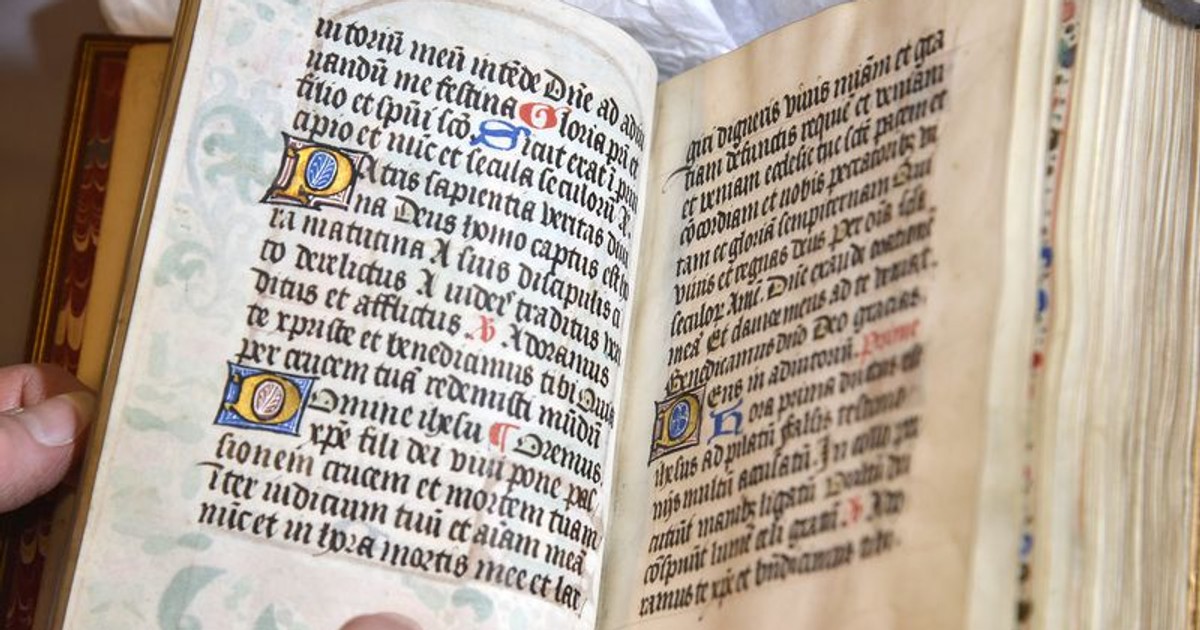 iutoriū meū intēde Dn̄e ad adiu
uandū me festina Gloria pr̄i et
filio et spūi scō. Sicut erat ī prin
cipio et nūc et secula seculorū A.
PAtris sapientia veritas diui
na Deus homo captus est ho
ra matutina A suis discipulis ci
to derelictus A iudeis traditus ven
ditus et afflictus. Adoramus
te xpriste et benedicimus tibi Quia
per crucem tuā redemisti mūdū
DOmine ihesu Oremus.
xp̄e fili dei viui pone pas
sionem crucem et mortem tuam
īter iudicium tuū et aīam meā
nūc et in hora mortis mee et lar
giri digneris viuis mīam et gra
ciam defunctis requiē et veniam
et veniam ecclesie tue scē pacem et
cōcordiam et nobis peccatoribꝫ vi
tam et gloriā sempiternam Qui
viuis et regnas deus Per oīa
seculor Amē. Dn̄e exaudi orationē
meā Et clamor meus ad te veniat.
Benedicamus dn̄o Deo gracias. Prime
DEus in adiutoriū.
Hora prima ductus est
ihesus ad pilatū falsis testimo
nijs multū acusatū. In collo per
cutiūt manibꝫ ligatū
cōspuūt lumē celi gratū. Ado
ramus te xp̄e et bn̄dicimus tibi.